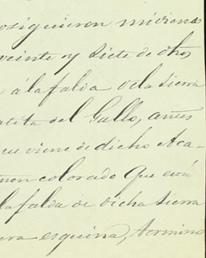 siguieron midiendo
veinte y siete de otros
á la falda de la Sierra
del Gallo, antes
que viene de dicho Aca-
colorado que está
la falda de dicha sierra
esquina, termino